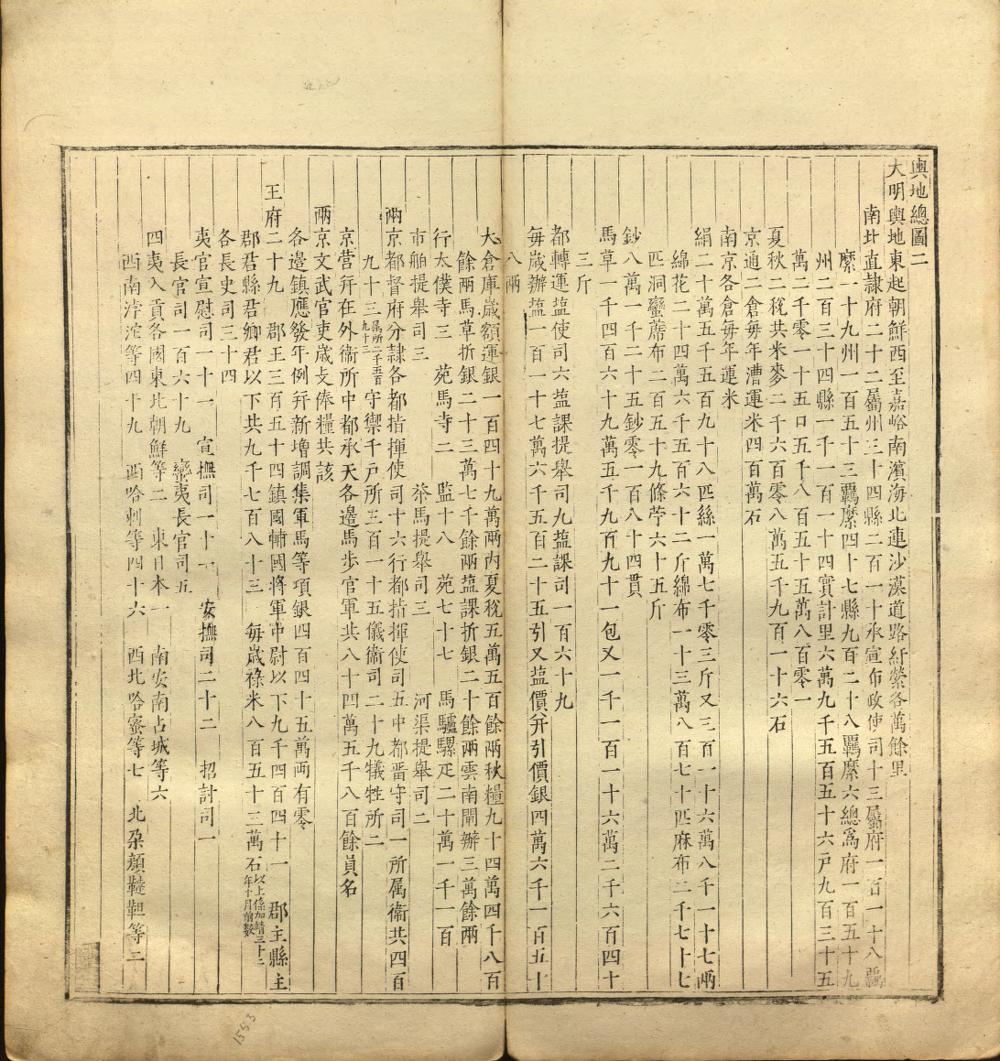 輿地總圖二
大明輿地東起朝鮮西至嘉峪南濱海北連沙漠道路紆縈各萬餘里
南北直隸府二十二屬州三十四縣二百一十承宣布政使司十三屬府一百一十八羈
縻一十九州一百五十三羈縻四十七縣九百二十八羈縻六總為府一百五十九
州二百三十四縣一千一百一十四實計里六萬九千五百五十六戶九百三十五
萬二千零一十五口五千八百五十五萬八百零一
夏秋二稅共米麥二千六百零八萬五千九百一十六石
京通二倉每年漕運米四百萬石
南京各倉每年運米
絹二十萬五千五百九十八匹絲一萬七千零三斤又三百一十六萬八千一十七兩
綿花二十四萬六千五百六十二斤綿布一十三萬八百七十匹麻布二千七十七
匹洞蠻蓆布二百五十九條苧六十五斤
鈔八萬一千二十五鈔零一百八十四貫
馬草一千四百六十九萬五千九百九十一包又一千一百一十六萬二千六百四十
三斤
都轉運塩使司六塩課提舉司九塩課司一百六十九
每歲辦塩一百一十七萬六千五百二十五引又塩價并引價銀四萬六千一百五十
八兩
大倉庫歲額運銀一百四十九萬兩內夏稅五萬五百餘兩秋糧九十四萬四千八百
餘兩馬草折銀二十三萬七千餘兩塩課折銀二十餘兩雲南閘辦三萬餘兩
行太僕寺三 苑馬寺二 監十八 苑七十七 馬驢騾疋二十萬一千一百
市舶提舉司三 茶馬提舉司三 河渠提舉司二
兩京都督府分隸各都指揮使司十六行都指揮使司五中都畱守司一所属衛共四百
九十三属所二千五百九十三守禦千戶所三百一十五儀衛司二十九犧牲所二
京营并在外衞所中都承天各邊馬步官軍共八十四萬五千八百餘員名
兩京文武官吏歲支俸糧共該
各邊鎮應發年例并新增調集軍馬等項銀四百四十五萬両有零
王府二十九 郡王三百五十四鎮國輔國將軍中尉以下九千四百四十一 郡主縣主
郡君縣君鄉君以下共九千七百八十三 每歲祿米八百五十三萬石以上係加靖三十二年十月前數
各長史司三十四
夷官宣慰司一十一 宣撫司一十 安撫司二十二 招討司一
長官司一百六十九 蠻夷長官司五
四夷入貢各國東北朝鮮等二 東日本一 南安南占城等六
西南浡泥等四十九 西哈剌等四十六 西北哈密等七 北朶顏韃靼等二
1553